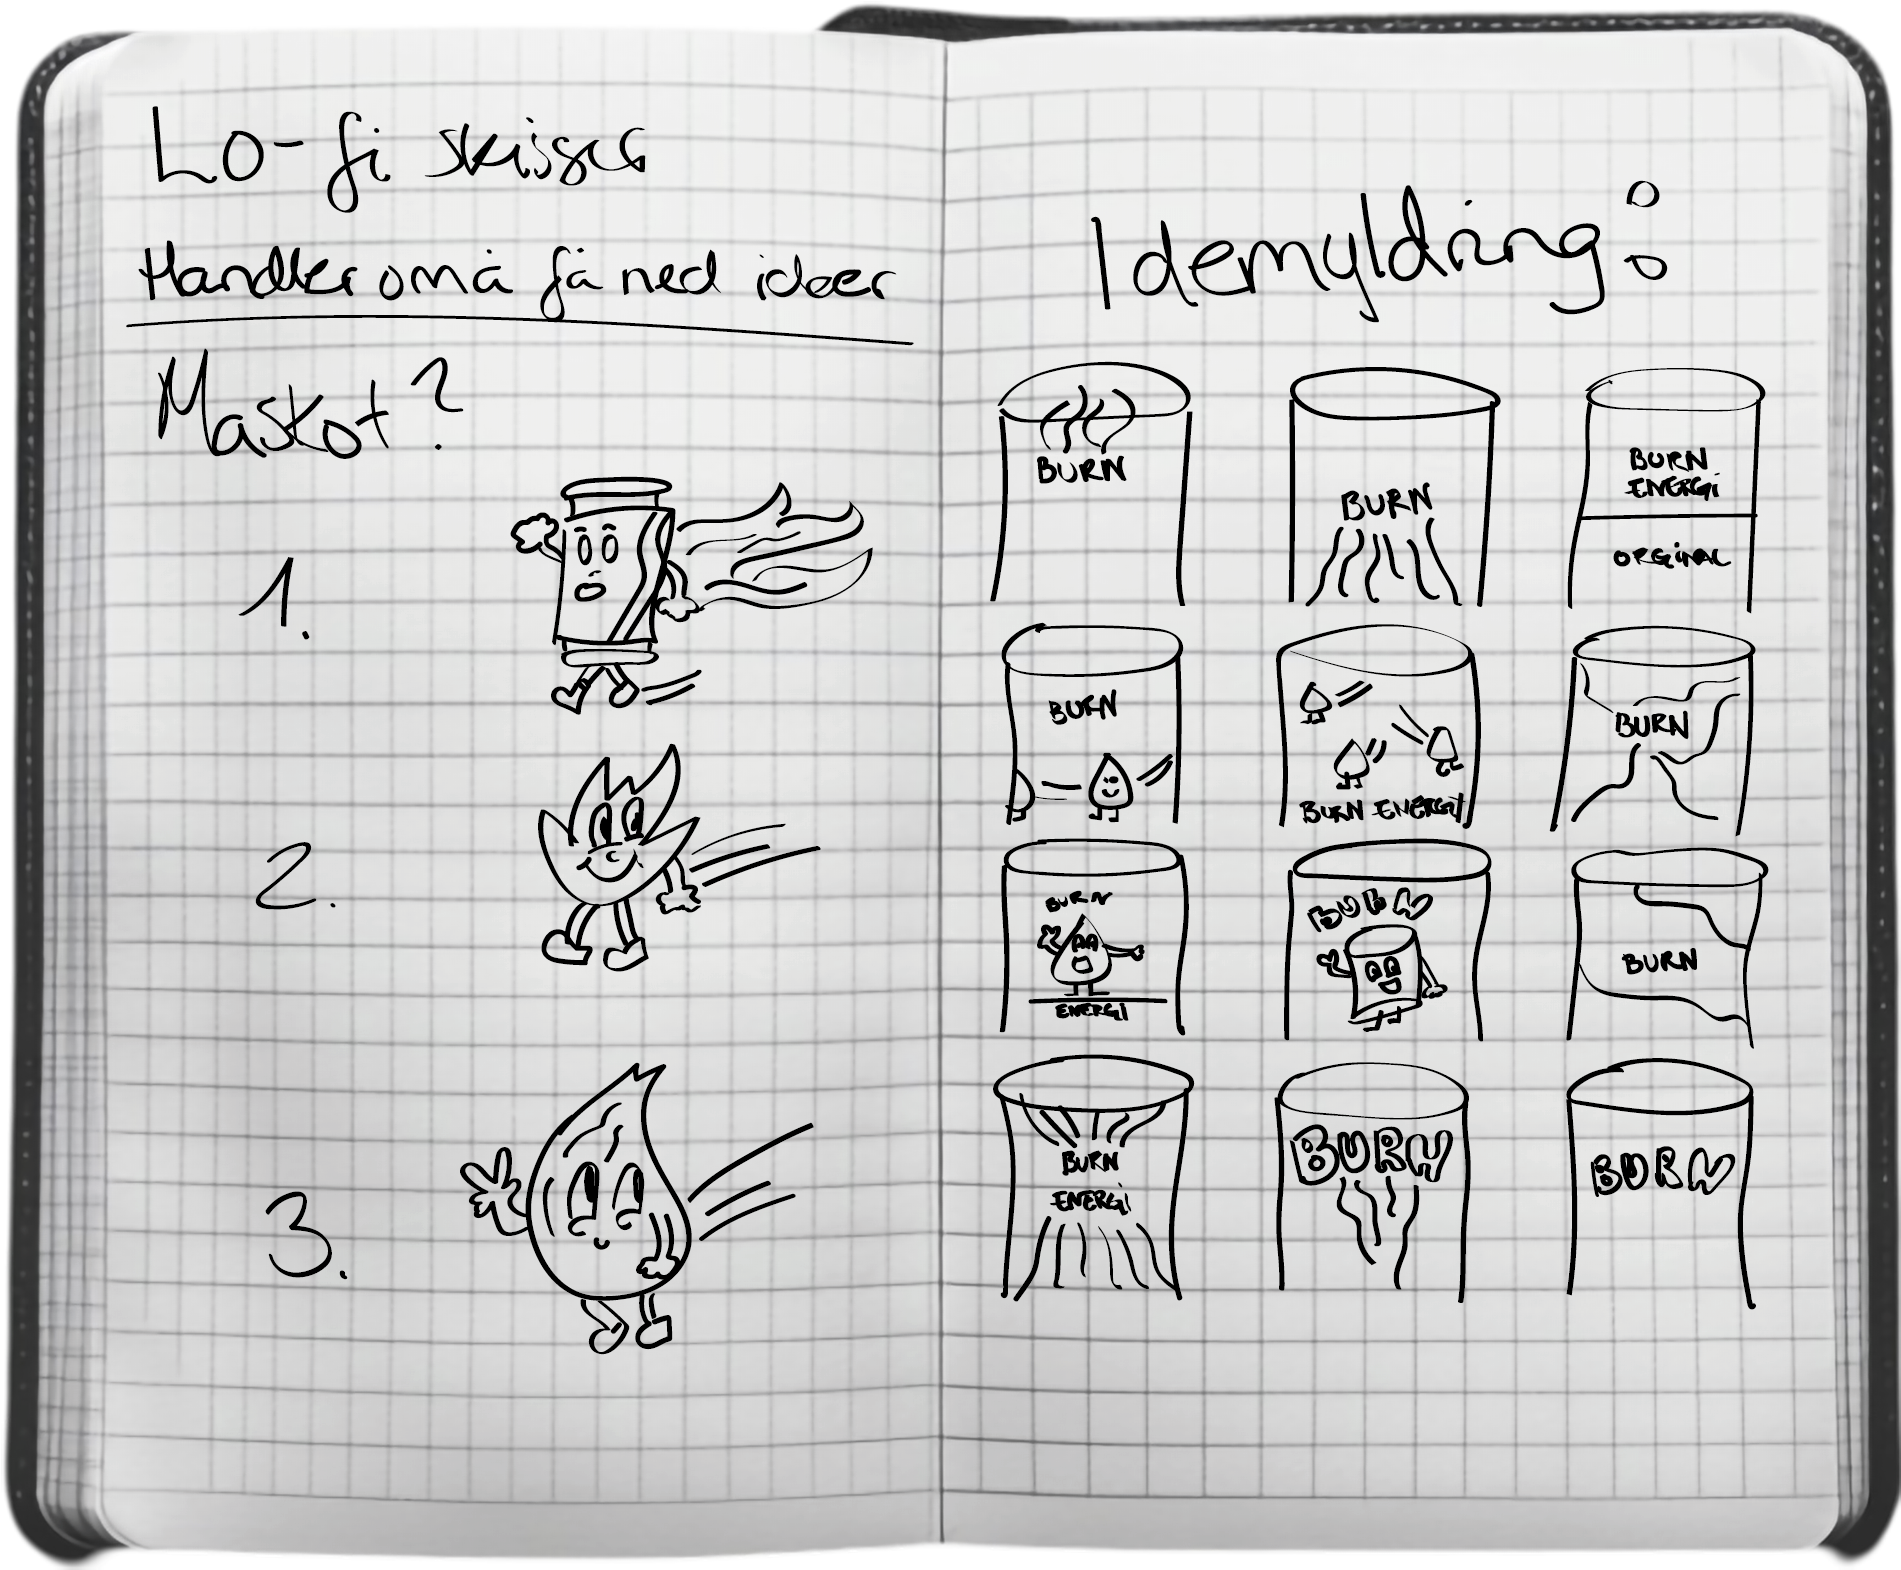 Lo-fi skisser
Handler om å få ned ideer
Maskot?
1.
2.
3.
Idemyldring:
BURN
BURN
BURN
ENERGI
ORGINAL
BURN
BURN ENERGI
BURN
BURN
ENERGI
BURN
BURN
BURN
ENERGI
BURN
BURN